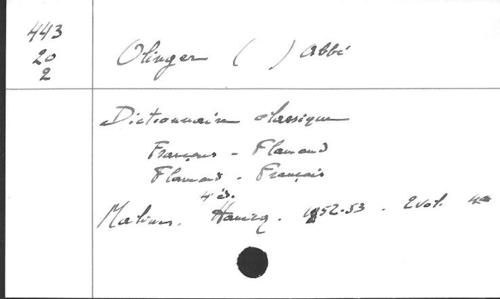 443
20
2
Olinger ( ) Abbé
Dictionnaire classique
Français - Flamand
Flamand - Français
4 éd.
Malines. Hanicq. 1852-53 . 2 vol. 4°